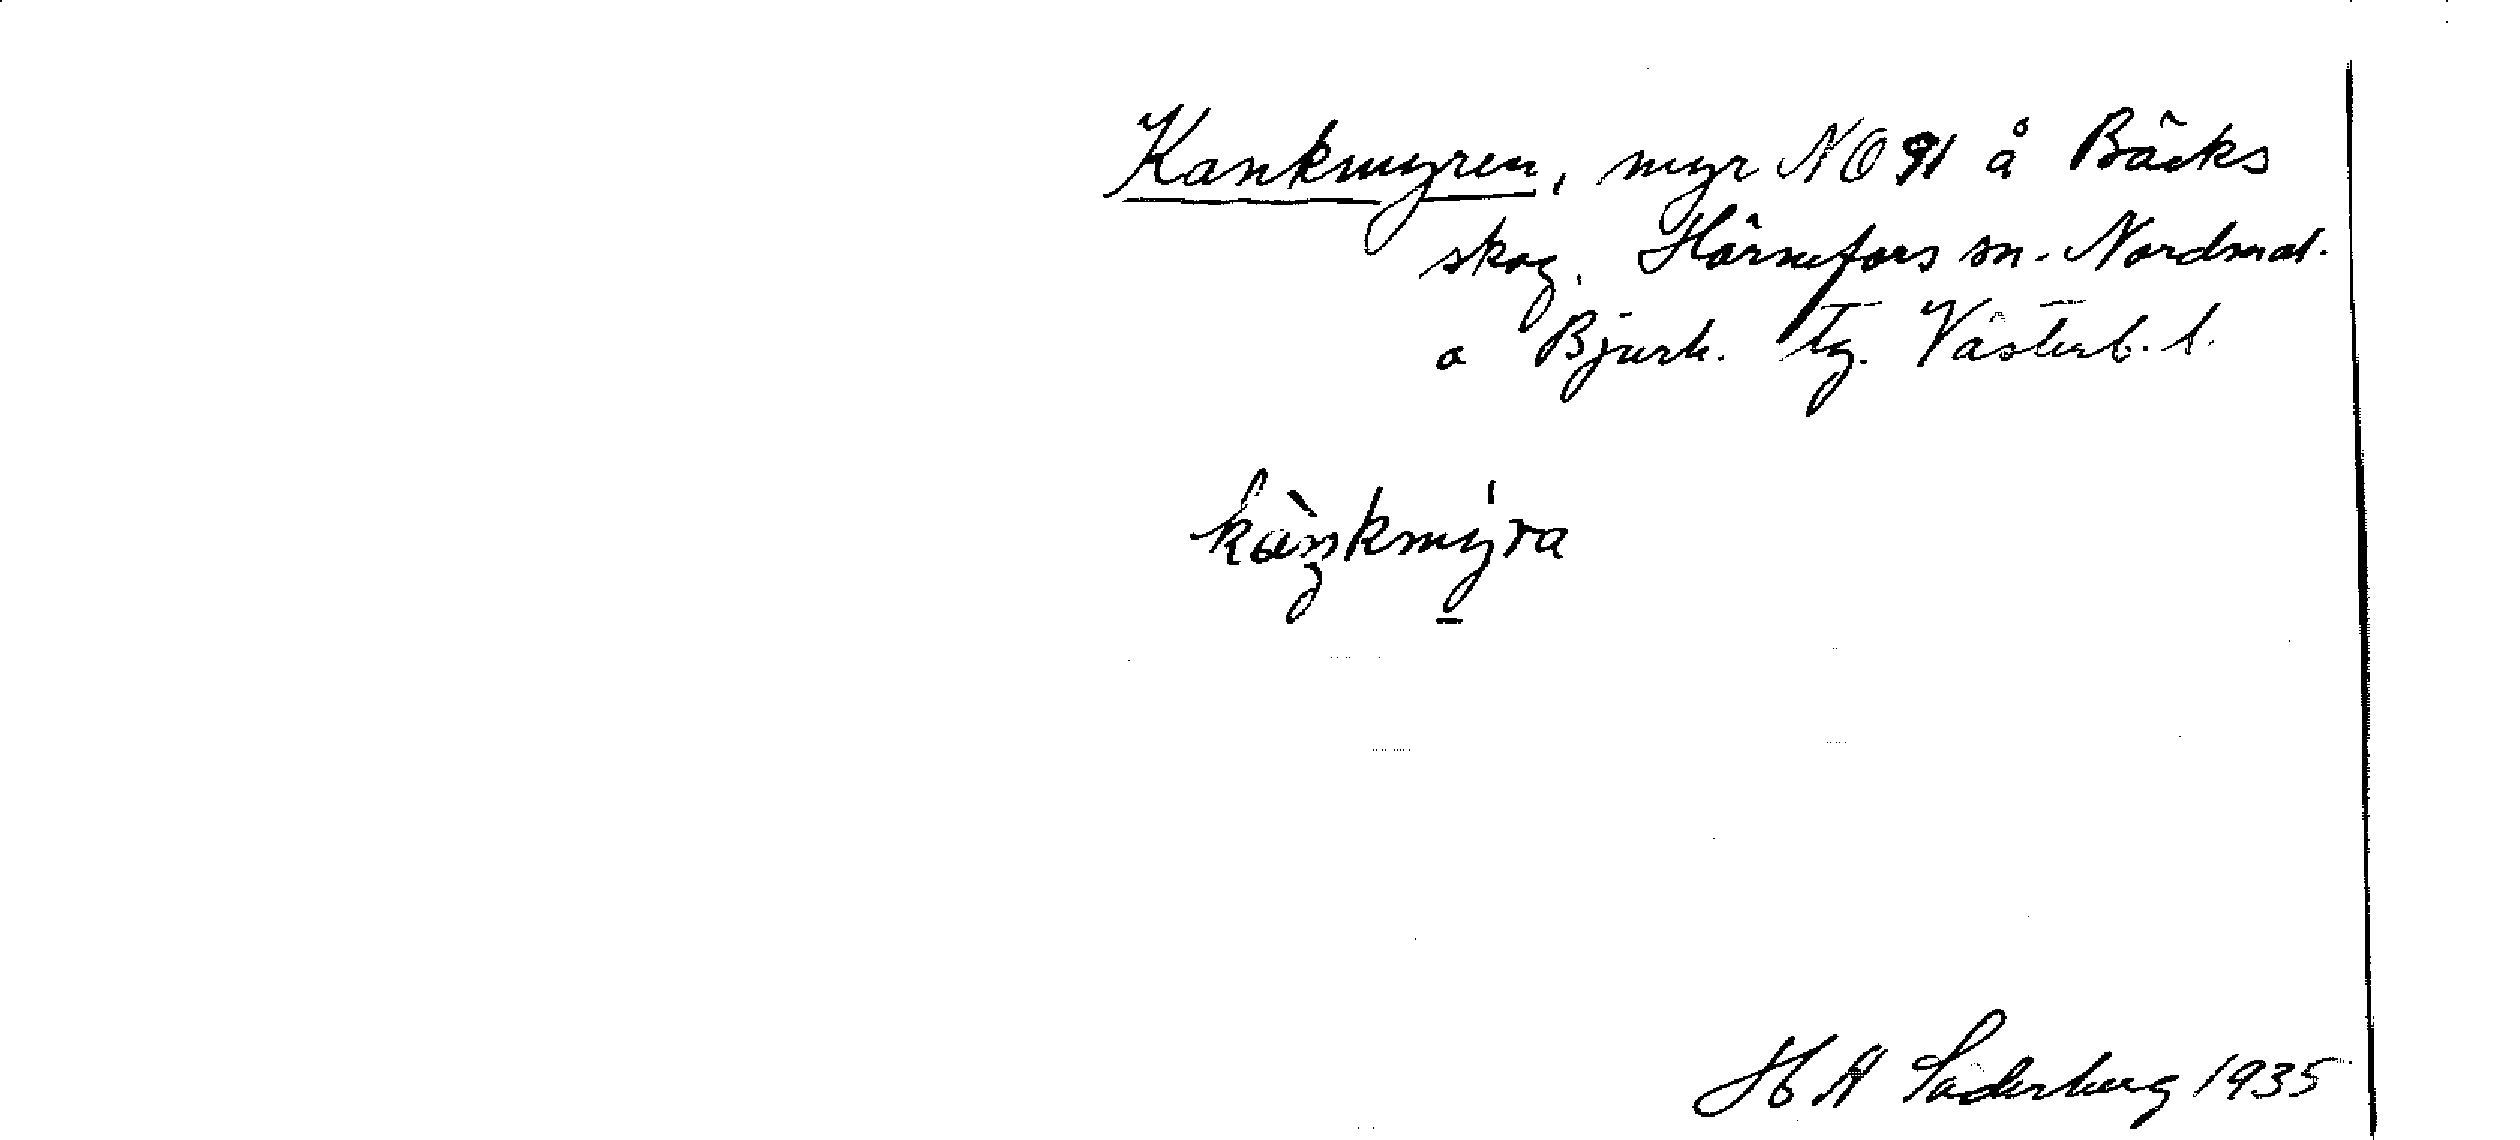 Kankmyren, myr NO 91 å Bäcks
skog. Hörnefors sn. Nordmal.
o Bjurh. tg. Västerb. l.
kàŋkmý̱ra
H A Söderberg 1935